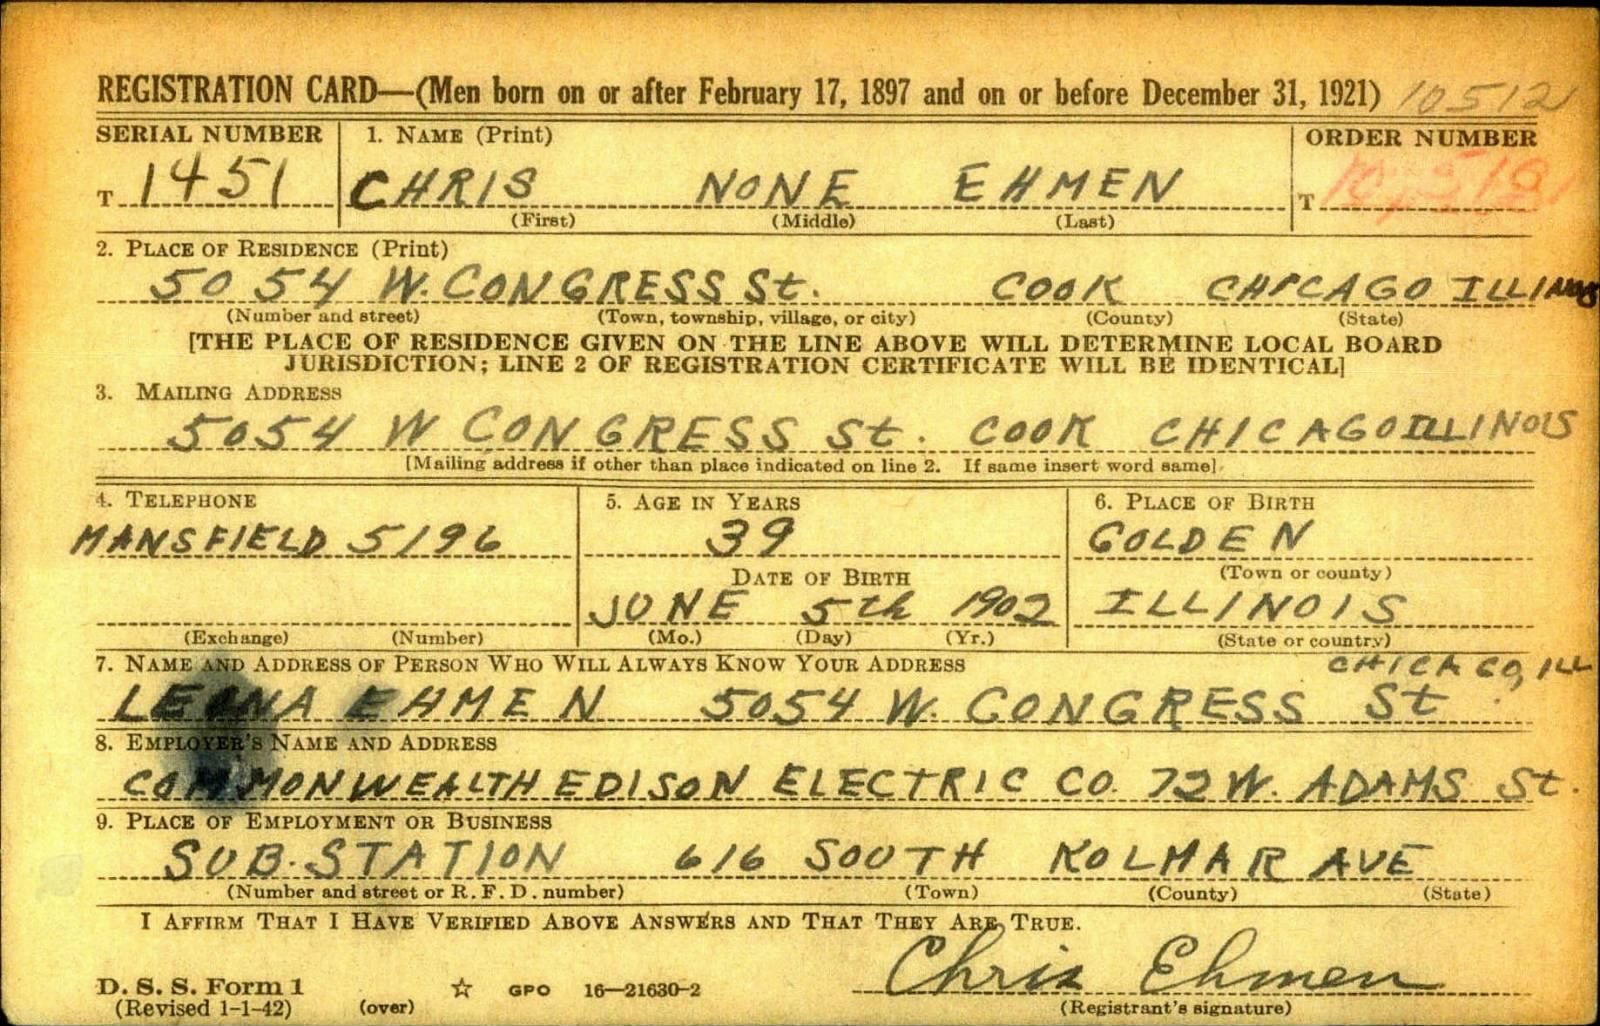 REGISTRATION CARD—(Men born on or after February 17, 1897 and on or before December 31, 1921) 10512
SERIAL NUMBER 1. NAME (Print) ORDER NUMBER
T 1451 CHRIS NONE EHMEN T
(First) (Middle) (Last)
2. PLACE OF RESIDENCE (Print)
5054 W. CONGRESS St. COOK CHICAGO ILLINOIS
(Number and street) (Town, township, village, or city) (County) (State)
[THE PLACE OF RESIDENCE GIVEN ON THE LINE ABOVE WILL DETERMINE LOCAL BOARD
JURISDICTION; LINE 2 OF REGISTRATION CERTIFICATE WILL BE IDENTICAL]
3. MAILING ADDRESS
5054 W CONGRESS St. COOK CHICAGO ILLINOIS
[Mailing address if other than place indicated on line 2. If same insert word same]
4. TELEPHONE 5. AGE IN YEARS 6. PLACE OF BIRTH
MANSFIELD 5196 39 GOLDEN
DATE OF BIRTH (Town or county)
JUNE 5th 1902 ILLINOIS
(Exchange) (Number) (Mo.) (Day) (Yr.) (State or country)
7. NAME AND ADDRESS OF PERSON WHO WILL ALWAYS KNOW YOUR ADDRESS CHICAGO, ILL
LEONA EHMEN 5054 W. CONGRESS St
8. EMPLOYER'S NAME AND ADDRESS
COMMONWEALTH EDISON ELECTRIC CO. 72 W. ADAMS St.
9. PLACE OF EMPLOYMENT OR BUSINESS
SUB. STATION 616 SOUTH KOLMAR AVE
(Number and street or R. F. D. number) (Town) (County) (State)
I AFFIRM THAT I HAVE VERIFIED ABOVE ANSWERS AND THAT THEY ARE TRUE.
Chris Ehmen
D. S. S. Form 1
(Revised 1-1-42) (over) ☆ GPO 16—21630-2 (Registrant's signature)